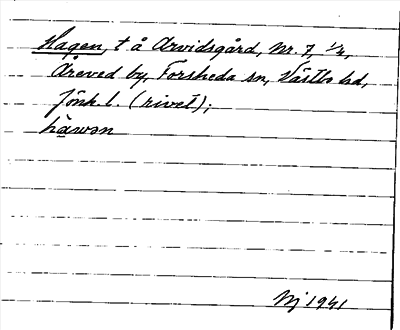 Hagen, t å Arvidsgård, nr. 7, 1/4,
Åreved by, Forsheda sn, Västbo hd,
Jönk. l. (rivet);
hàwən
Nj 1941